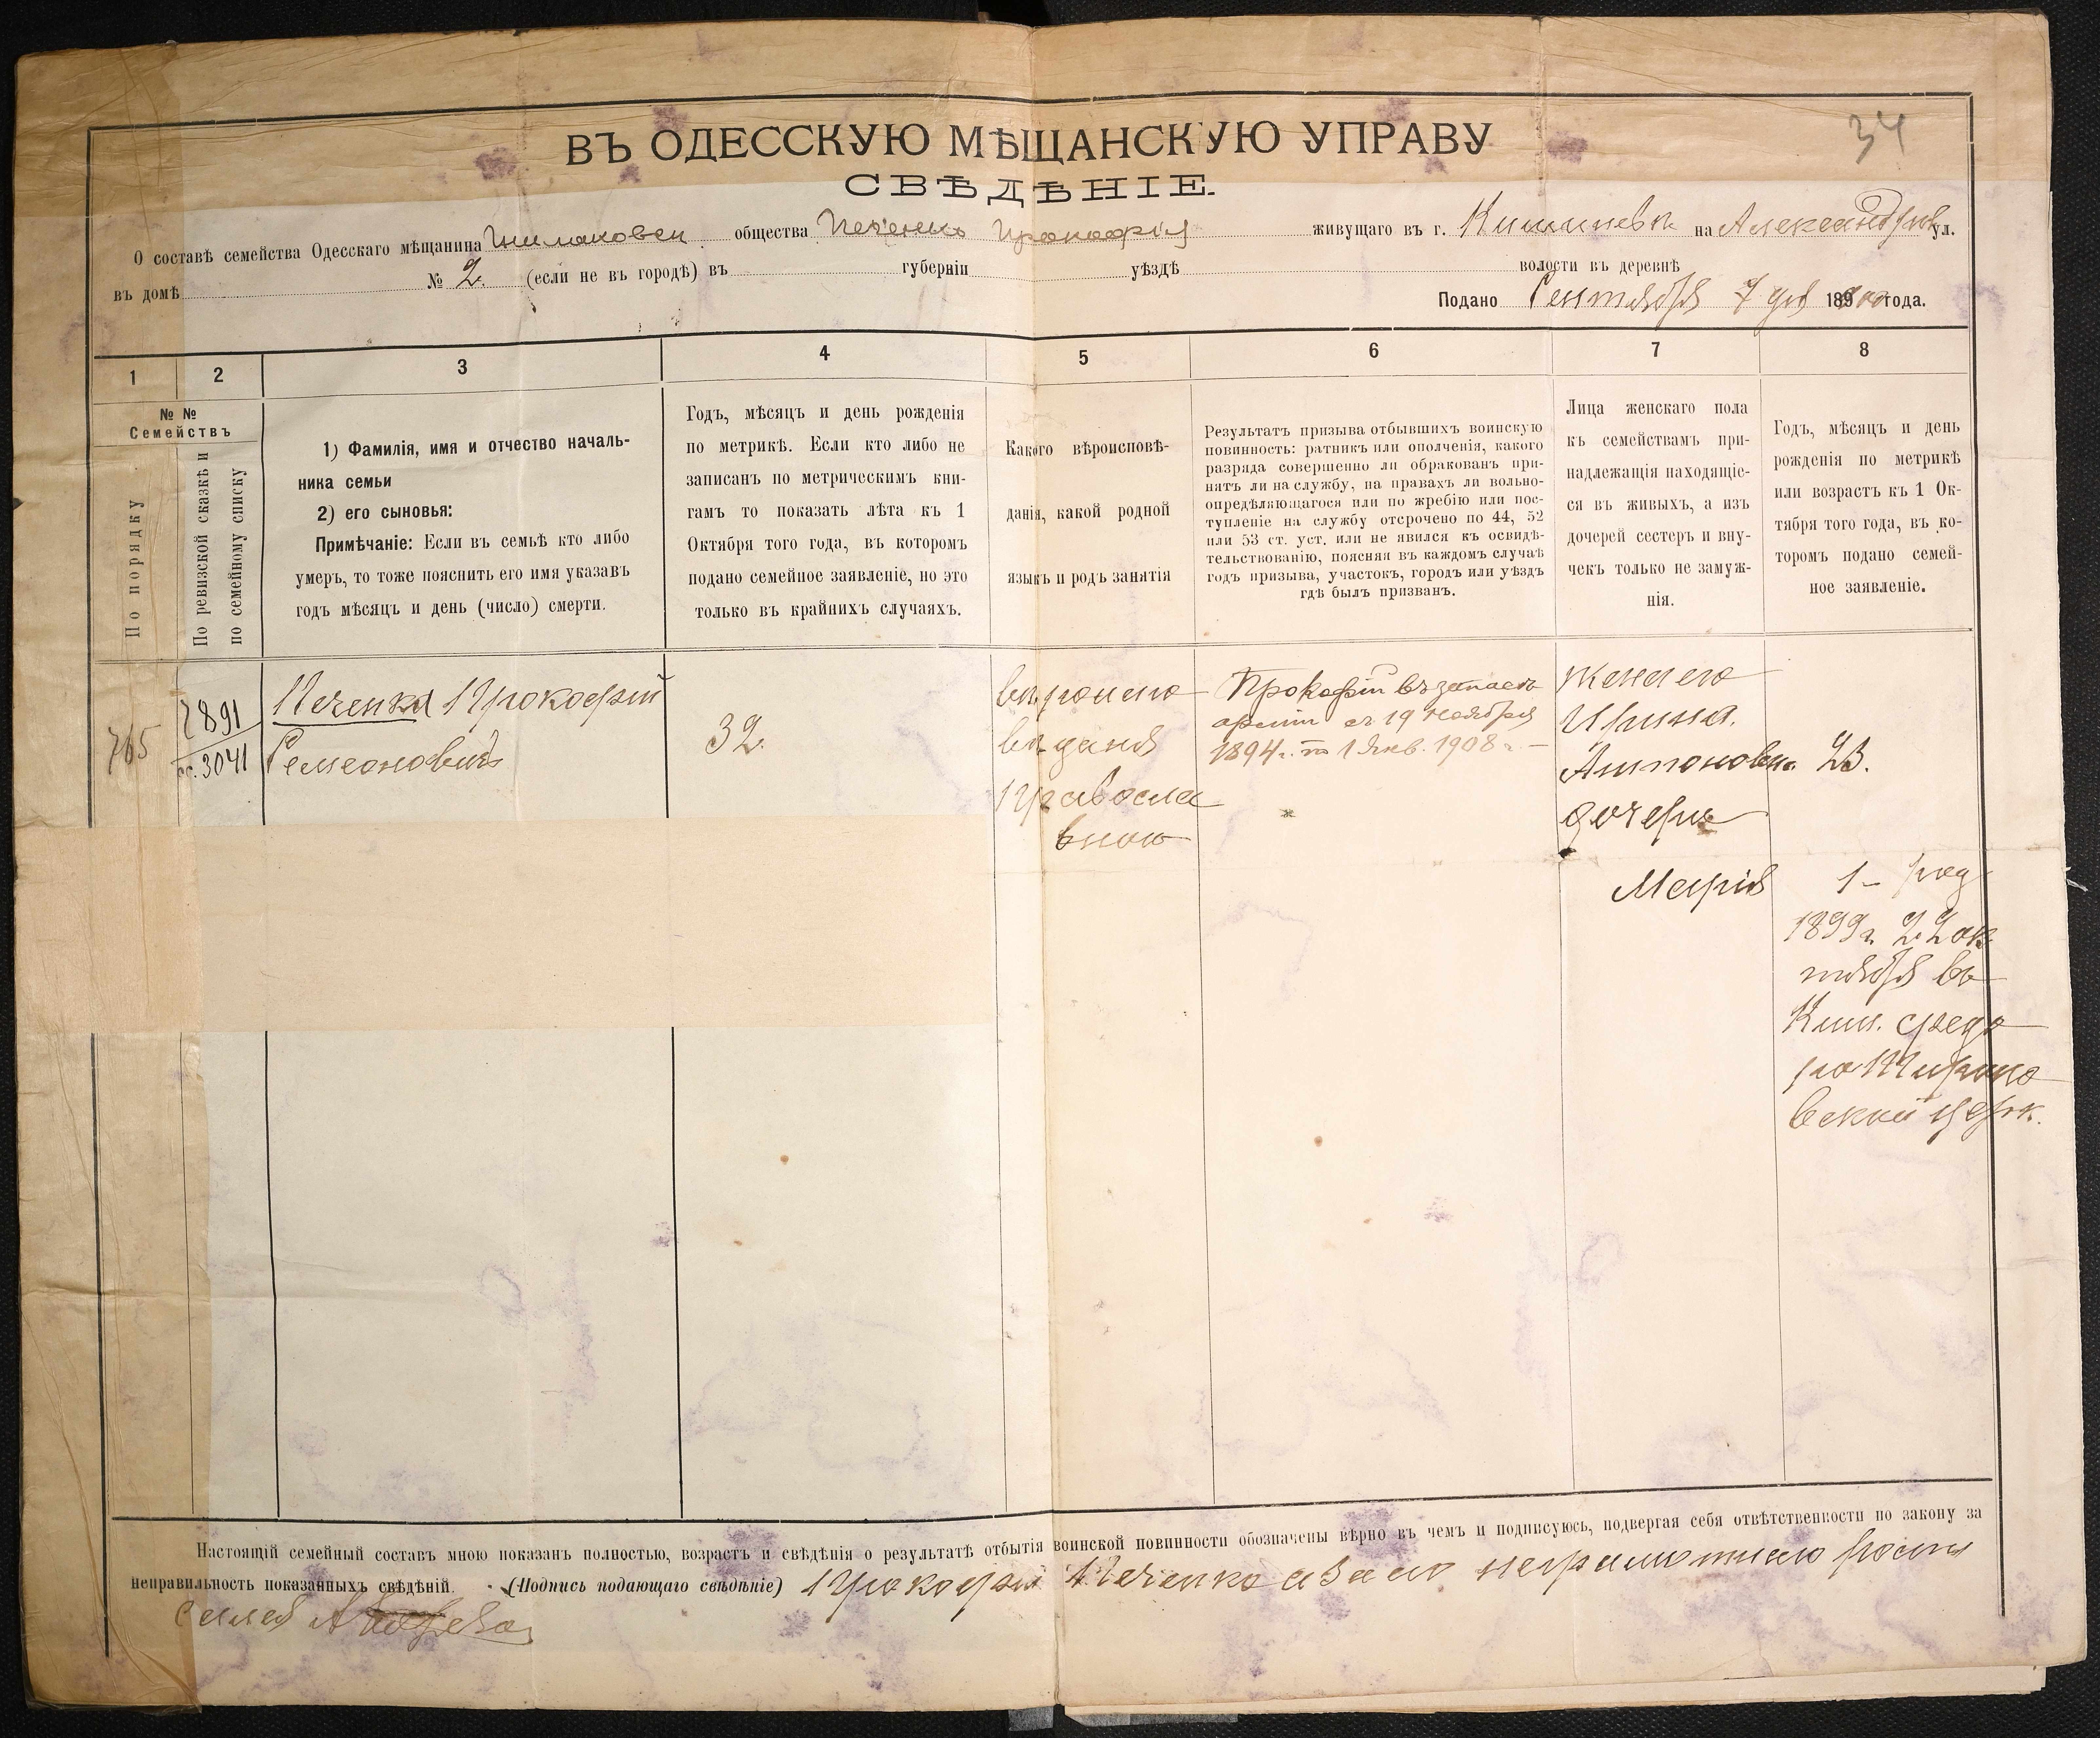 34
ВЪ ОДЕССКУЮ МѢЩАНСКУЮ УПРАВУ
СВѢДѢНІЕ.
О составѣ семейства Одесскаго мѣщанина общества Печенко Прокофія живущаго въ г. Кишиневѣ на Александров ул.
въ домѣ № 2. (если не въ городѣ) въ губерніи уѣздѣ волости въ деревнѣ
Подано Сентября 7 дня 189 года.
1 2 3 4 5 6 7 8
№ № Семействъ
По порядку
По ревизской сказкѣ и по семейному списку
1) Фамилія, имя и отчество началь-
ника семьи
2) его сыновья:
Примѣчаніе: Если въ семьѣ кто либо
умеръ, то тоже пояснить его имя указавъ
годъ мѣсяцъ и день (число) смерти.
Годъ, мѣсяцъ и день рожденія
по метрикѣ. Если кто либо не
записанъ по метрическимъ кни-
гамъ то показать лѣта къ 1
Октября того года, въ которомъ
подано семейное заявленіе, но это
только въ крайнихъ случаяхъ.
Какого вѣроисповѣ-
данія, какой родной
языкъ и родъ занятія
Результатъ призыва отбывшихъ воинскую
повинность: ратникъ или ополченія, какого
разряда совершенно ли обракованъ при-
нятъ ли на службу, на правахъ ли вольно-
опредѣляющагося или по жребію или пос-
тупленіе на службу отсрочено по 44, 52
или 53 ст. уст. или не явился къ освидѣ-
тельствованію, поясняя въ каждомъ случаѣ
годъ призыва, участокъ, городъ или уѣздъ
гдѣ былъ призванъ.
Лица женскаго пола
къ семействамъ при-
надлежащія находящіе-
ся въ живыхъ, а изъ
дочерей сестеръ и вну-
чекъ только не замуж-
нія.
Годъ, мѣсяцъ и день
рожденія по метрикѣ
или возрастъ къ 1 Ок-
тября того года, въ ко-
торомъ подано семей-
ное заявленіе.
765
2891
3041
Печенка Прокофій
Семеоновичъ
32.
вѣроиспо
вѣданія
Правосла
вною
Прокофій въ запасѣ
арміи съ 19 Ноября
1894 г. по 1 Янв. 1908 г. —
Жена его
Ирина
Антоновна 23.
дочерь
Марія
1 – род
1899 г. 22 ок
тября въ
Киш. средо
ра Тироно
вской церк.
Настоящій семейный составъ мною показанъ полностью, возрастъ и свѣдѣнія о результатѣ отбытія воинской повинности обозначены вѣрно въ чемъ и подписуюсь, подвергая себя отвѣтственности по закону за
неправильность показанныхъ свѣдѣній. (Подпись подающаго свѣдѣніе) Прокофій Печенко а за его неграмотного роспи
сался